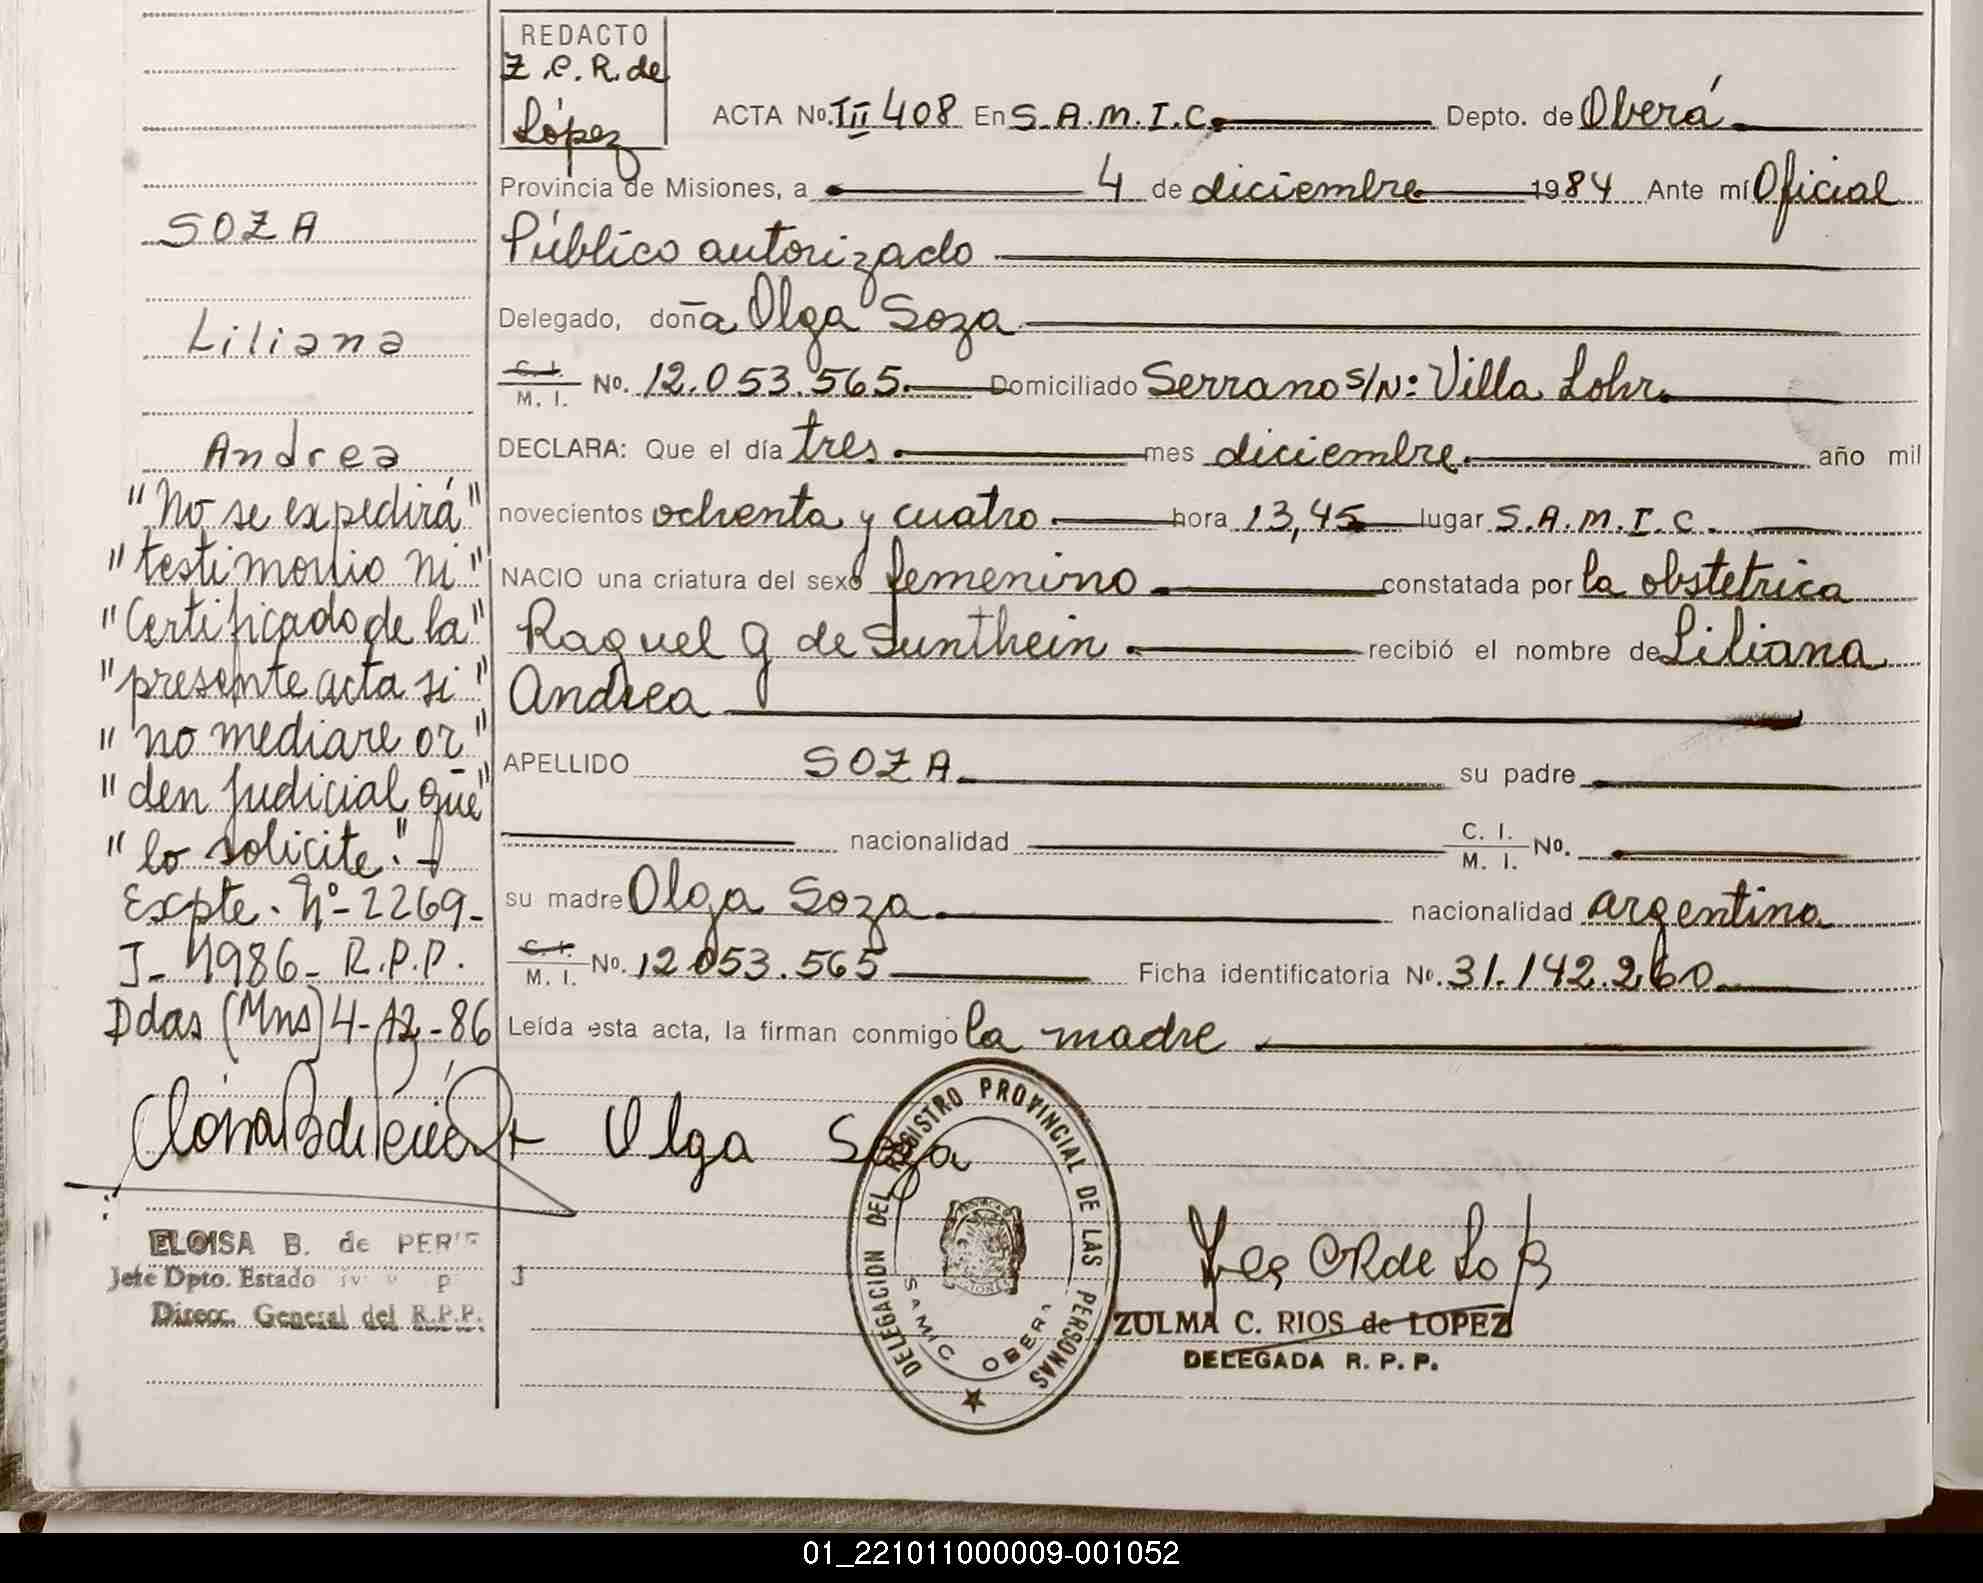 REDACTO
Z.C.R. de
López
ACTA No. III 408 En S.A.M.I.C. Depto. de Oberá
Provincia de Misiones, a 4 de diciembre 1984 Ante mí Oficial
Público autorizado
Delegado, doña Olga Soza
C. I. / M. I. No. 12.053.565. Domiciliado Serrano S/Nº: Villa Lohr
DECLARA: Que el día tres mes diciembre año mil
novecientos ochenta y cuatro hora 13,45 lugar S.A.M.I.C.
NACIO una criatura del sexo femenino constatada por la obstetrica
Raquel G de Sunthein recibió el nombre de Liliana
Andrea
APELLIDO SOZA su padre
nacionalidad C. I. / M. I. No.
su madre Olga Soza nacionalidad argentina
C. I. / M. I. No. 12.053.565 Ficha identificatoria No. 31.142.260
Leída esta acta, la firman conmigo la madre
Olga Soza
DELEGACION DEL REGISTRO PROVINCIAL DE LAS PERSONAS
SAMIC OBERA
ZULMA C. RIOS de LOPEZ
DELEGADA R. P. P.
SOZA
Liliana
Andrea
"No se expedirá"
"testimonio ni"
"Certificado de la"
"presente acta si"
"no mediare or"
"den judicial que"
"lo solicite".-
Expte. Nº- 2269-
J- 1986- R.P.P.
Pdas (Mns) 4-12-86
ELOISA B. de
Jefe Dpto. Estado
Direcc. General del R.P.P.
01_221011000009-001052